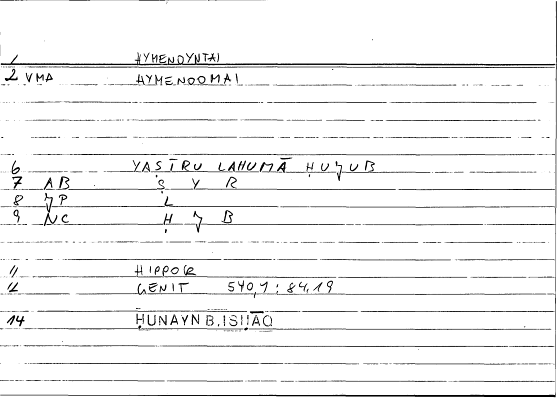 1 HYMENOYNTAI
2 VMA HYMENOOMAI
6 YAṢĪRU LAHUMĀ ḤUǦUB
7 AB Ṣ Y R
8 ǦP L
9 NC Ḥ Ǧ B
11 HIPPOCR
12 GENIT 540,1 : 84,19
14 ḤUNAYN B. ISḤĀQ